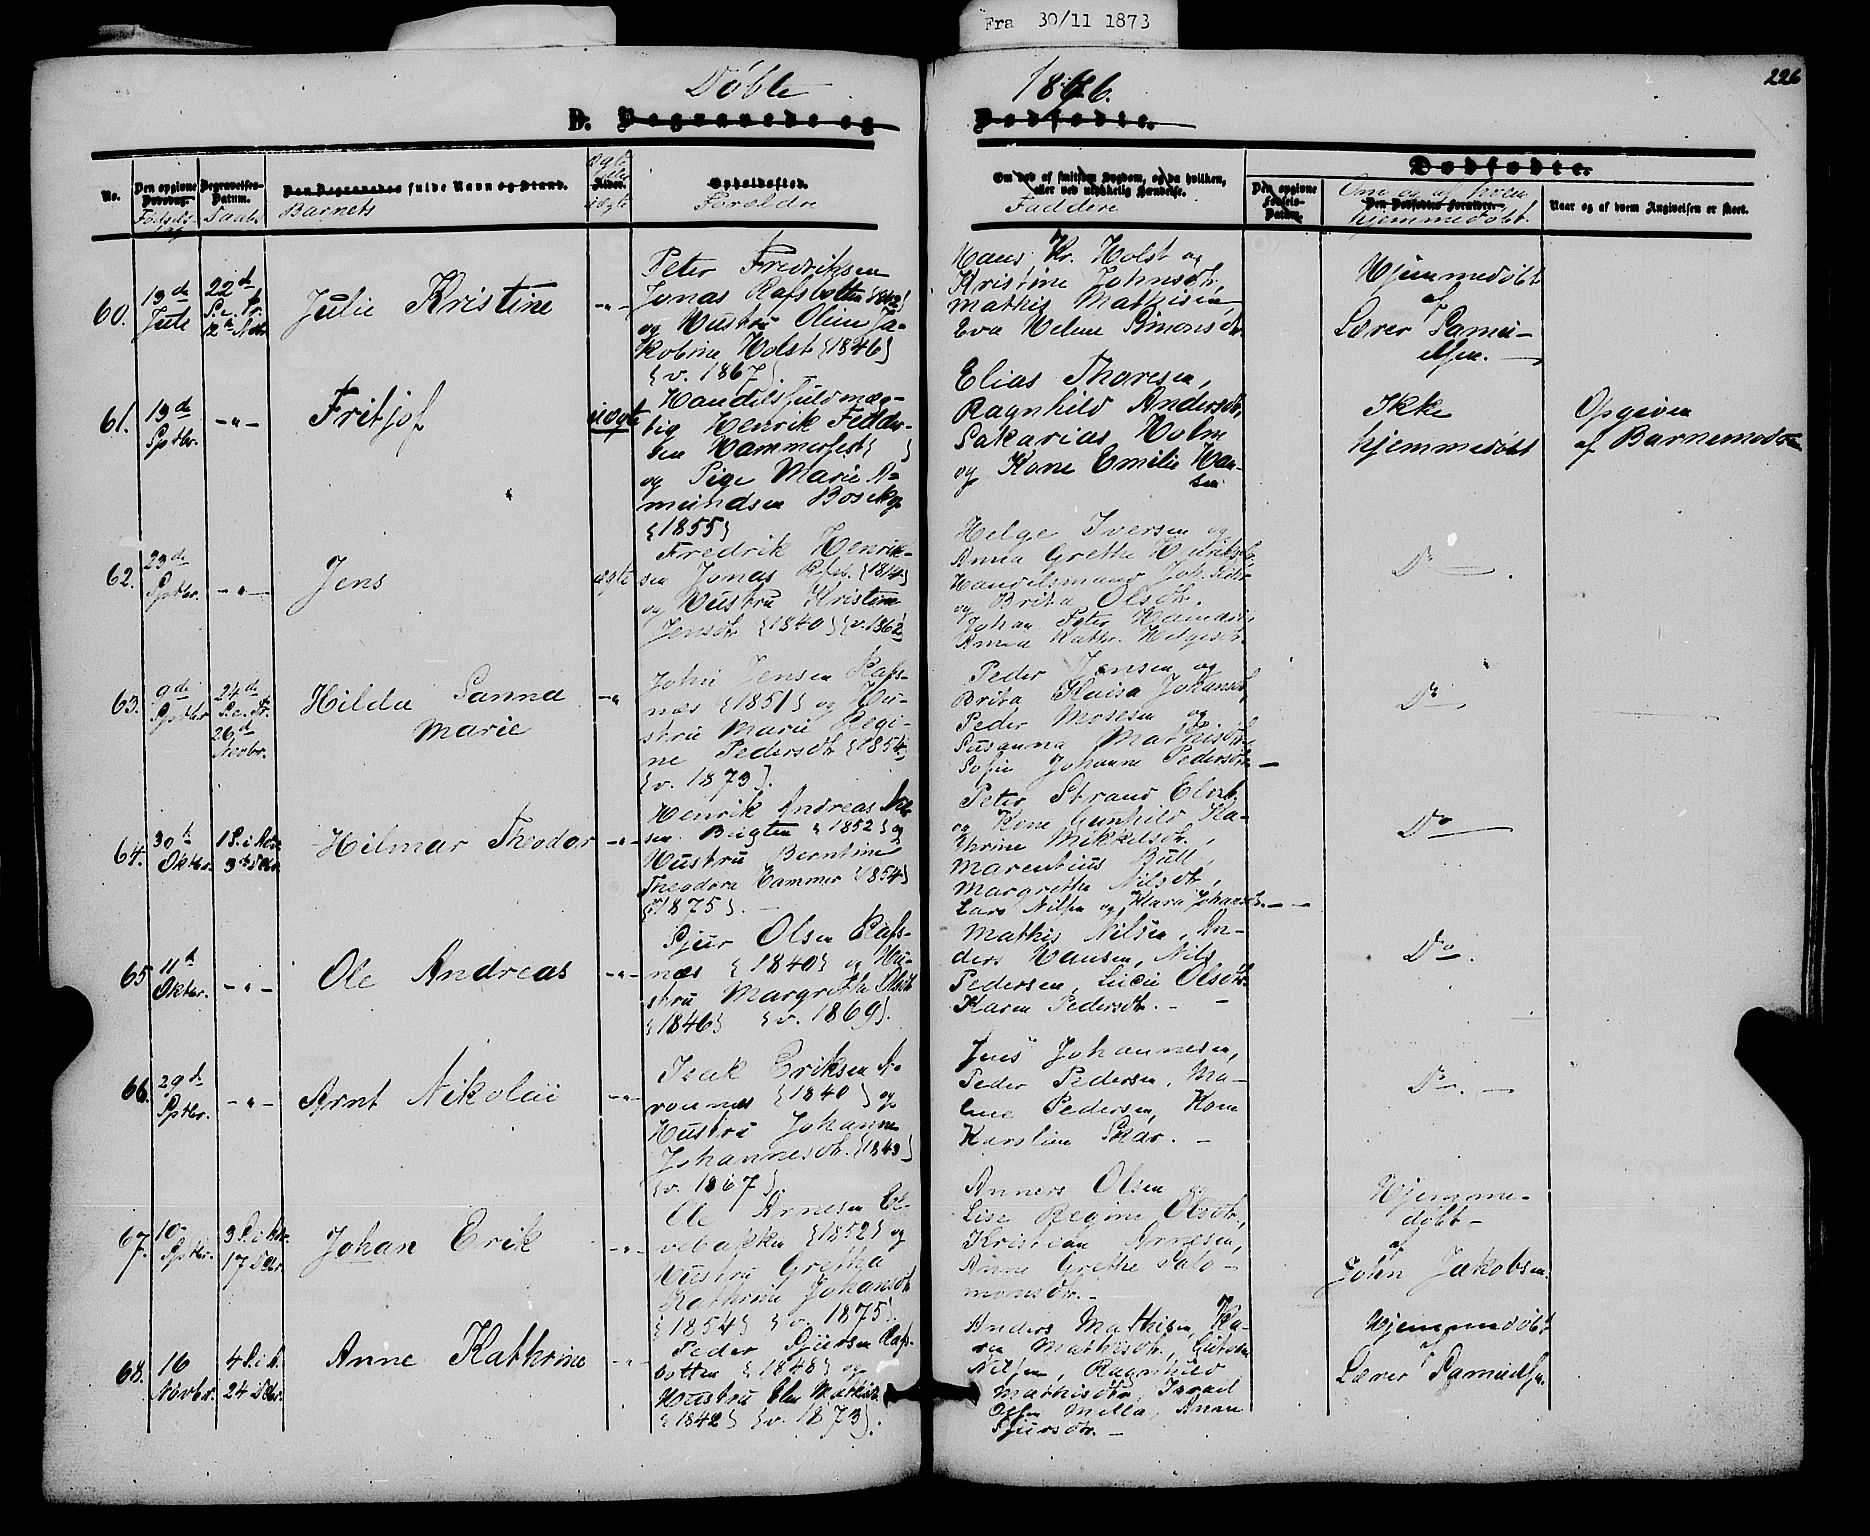 Fra 30/11 1873
226
Døbte
1876.
D. Begravede og
Dødfødte.
No.
Den opgivne Dødsdag.
Fødsels-
Begravelses-Datum.
Daab.
Den Begravedes fulde Navn og Stand.
Barnets
Ægte
Alder.
uægte
Opholdssted.
Forældre
Om død af smitsom Sygdom, og da hvilken,
eller ved ulykkelig Hændelse.
Faddere
Dødfødte.
Den opgivne Fødsels-Datum.
Om og af hvem
Den Dødfødtes Forældre.
hjemmedøbt.
Naar og af hvem Angivelsen er skeet.
60.
19de
Juli
22de
S. e. Tr.
12te Novbr
Julie Kristine
-"-
Peter Fredriksen
Jonas Rafsbotten
og Hustru Oline Ja-
kobine Holst {1846}
{v. 1867}
Hans Kr. Holst og
Kristine Johnsdt,
Mathis Mathisen,
Eva Helene Simonsdt
Hjemmedøbt
af
Lærer Samu-
elsen.
61.
19de
Sptbr.
-"-
Fritjof
uægte
Handelsfuldmæg-
tig Henrik Fedder-
sen Hammerfest { }
og Pige Marie A-
mundsen Bosekop
{1855}
Elias Thoresen,
Ragnhild Andersdt,
Sakarias Holm
og Kone Emilie Han-
sen
Ikke
hjemmedøbt
Opgiven
af Barnemoder
62.
23de
Sptbr.
-"-
Jens
ægte
Fredrik Henrik-
sen Jonas Rafsb. {1844}
og Hustru Kristine
Jensdt. {1840} {v. 1862}
Helge Iversen og
Anna Grethe Henriksdt,
Handelsmand Joh.
og Brita Olsdt.
Johan Peter
Anna Kathr. Helgesdt.
Do
63.
9de
Sptbr
24de
S. e. Tr.
26de
Novbr.
Hilda Sanna
Marie
-"
John Jensen Rafs-
næs {1851} og Hu-
stru Marie Regi-
ne Pedersdt {1854}
{v. 1873}.
Peder Jensen og
Brita Kaisa Johansdt,
Peder Mosesen og
Susanna Mathisdt,
Sofie Johanne Pedersdt.
Do
64.
30te
Oktbr.
1 S. i Adv.
3die Decbr
Hilmar Theodor
-"-
Henrik Andreas
sen Bugten {1852} og
Hustru Berntine
Theodora Hammer {1854}
{v. 1875}.
Peter Strand Elveb.
og Kone Gunhild Ka-
thrine Mikkelsdt,
Marentius Bull,
Margrethe Nilsdt,
Lars Nilsen og Klara Johansdt.
Do
65
11te
Oktbr.
-"-
Ole Andreas
-"-
Sjur Olsen Rafs-
næs {1840} og Hu-
stru Margrethe Olsdt
{1846} {v. 1869}.
Mathis Nilsen, An-
ders Hansen, Nils
Pedersen, Lucie Olsdt.
Karen Pedersdt.
Do.
66.
29de
Sptbr.
-"-
Arnt Nikolai
-"-
Isak Eriksen A-
ronnæs {1840} og
Hustru Johanne
Johannesdt. {1843}
{v. 1867}.
Jens Johannesen,
Peder Pedersen, Ma-
Pedersen, Kone
Karoline Skar.
Do.
67.
10
Sptbr.
3 S. i Adv.
17 Decbr.
Johan Erik
-"-
Ole Arnesen El-
vebakken {1852} og
Hustru Grethe
Kathrine Johansdt
{1854} {v. 1875}.
Anners Olsen og
Lise Regine Olsdt,
Kristian Arnesen,
Anne Grethe Salo-
monsdt.
Hjemme-
døbt
af
John Jakobsen.
68.
16
Novbr.
4 S. i A.
24 Decbr.
Anne Kathrine
-"-
Peder Sjursen Rafs-
botten {1848} og
Hustru Elen Mathisdt
{1842} {v. 1873}.
Anders Mathisen, Ka-
ren Mathisdt,
Nilsen, Ragnhild
Mathisdtr, Israel
Olsen Mella, Anne
Sjursdtr.
Hjemmedøbt
af
Lærer Samuelsen.